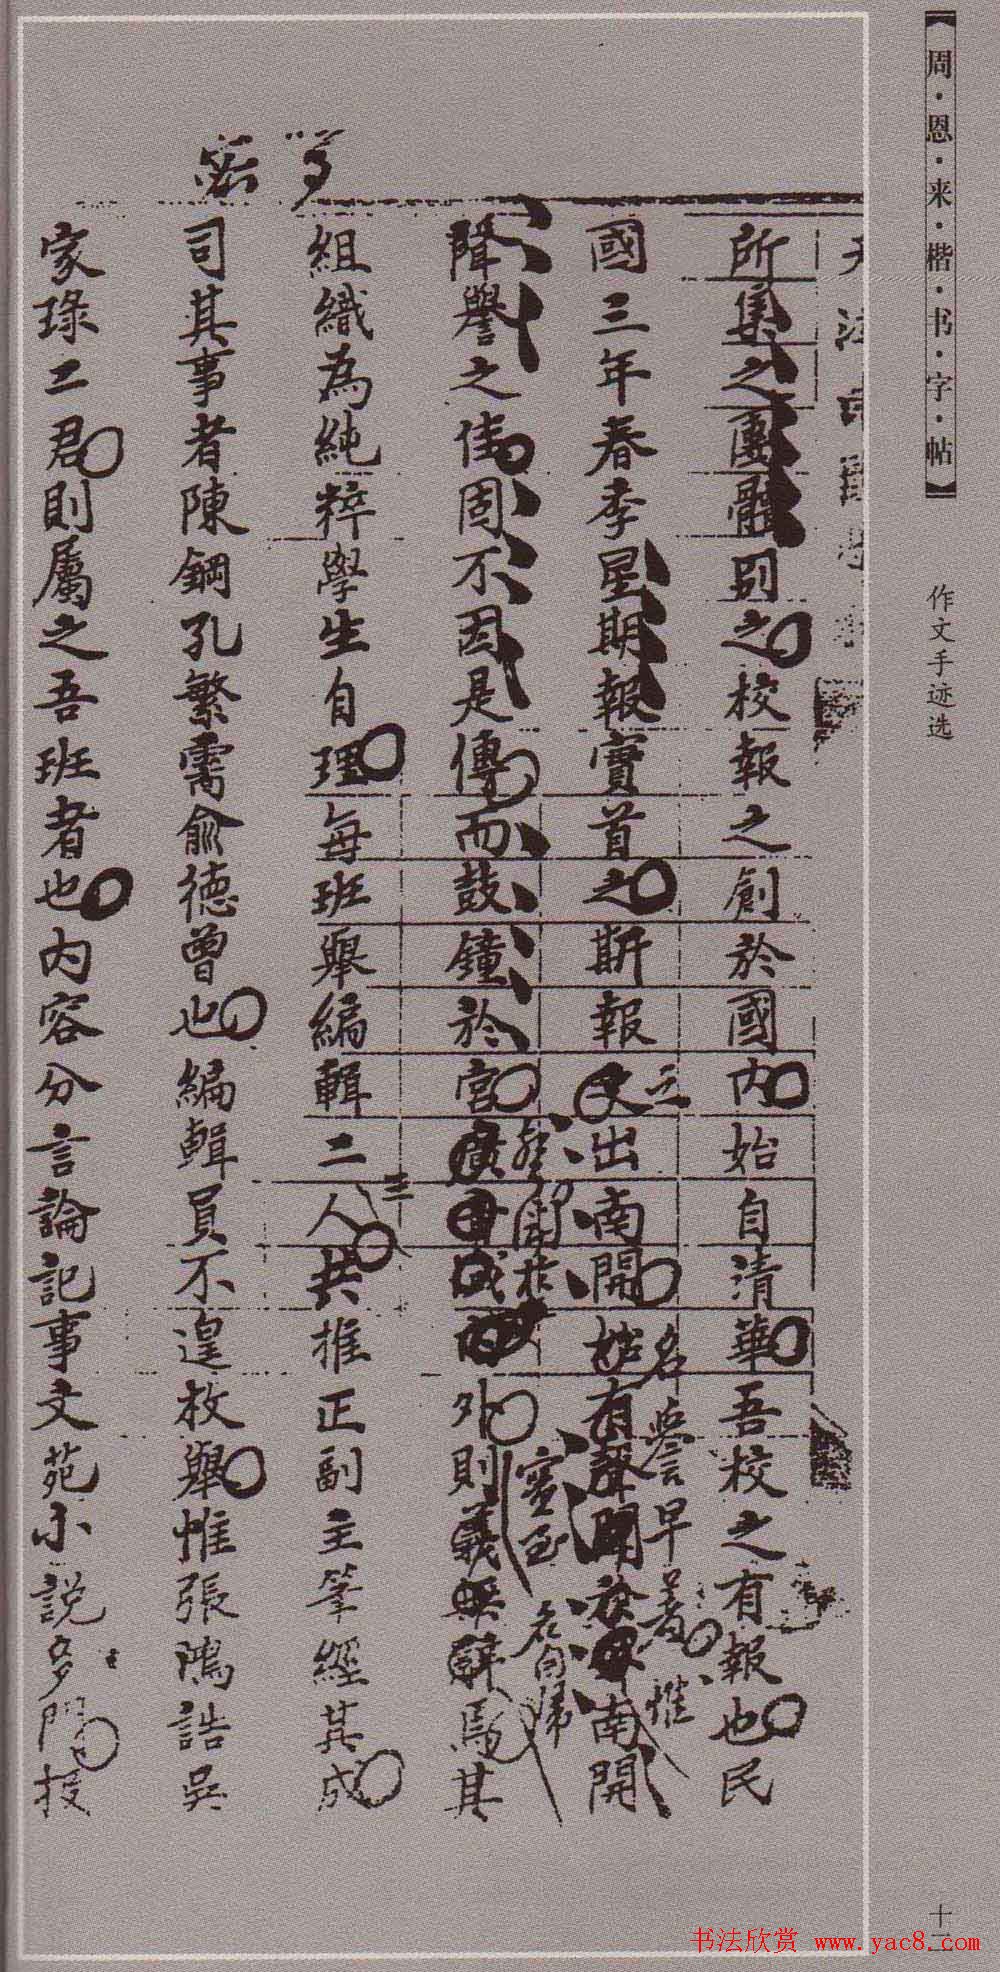 【周·恩·来·楷·书·字·帖】
作文手迹选
十二
所集之團體別之校報之創於國內始自清華吾校之有報也民
國三年春季星期報實首之斯報出南開有聲聞於南開
名譽早著惟
聲譽之佳固不因是傳而鼓鐘於宮外則義無辭焉其
聲聞於
實至名自歸
組織為純粹學生自理每班舉編輯二人共推正副主筆經其成
三
司其事者陳鋼孔繁霱俞德曾也編輯員不遑枚舉惟張鴻誥吳
家琭二君則屬之吾班者也內容分言論記事文苑小説多門投
书法欣赏 www.yac8.com